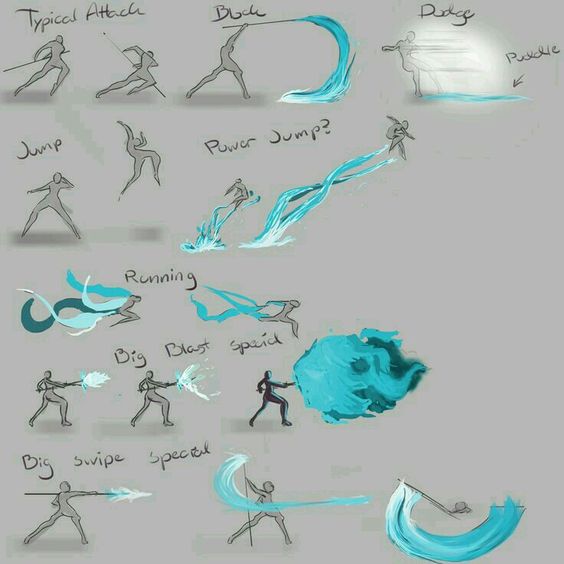 Typical Attack
Block
Dodge
Puddle
Jump
Power Jump?
Running
Big Blast special
Big swipe special